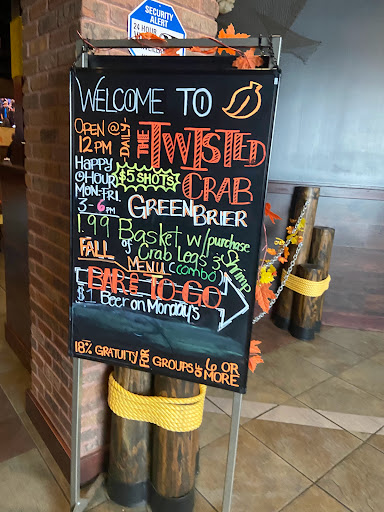 SECURITY
ALERT
24 HOUR
WELCOME TO
OPEN @
12 PM
DAILY
THE
TWISTED
CRAB
HAPPY
HOUR
MON-FRI
3-6PM
$5 SHOTS
GREENBRIER
1.99 BASKET W/ PURCHASE
OF CRAB LEGS & SHRIMP
(COMBO)
FALL
MENU
BARE TO-GO
$1 BEER ON MONDAYS
18% GRATUITY FOR GROUPS OF 6 OR
MORE